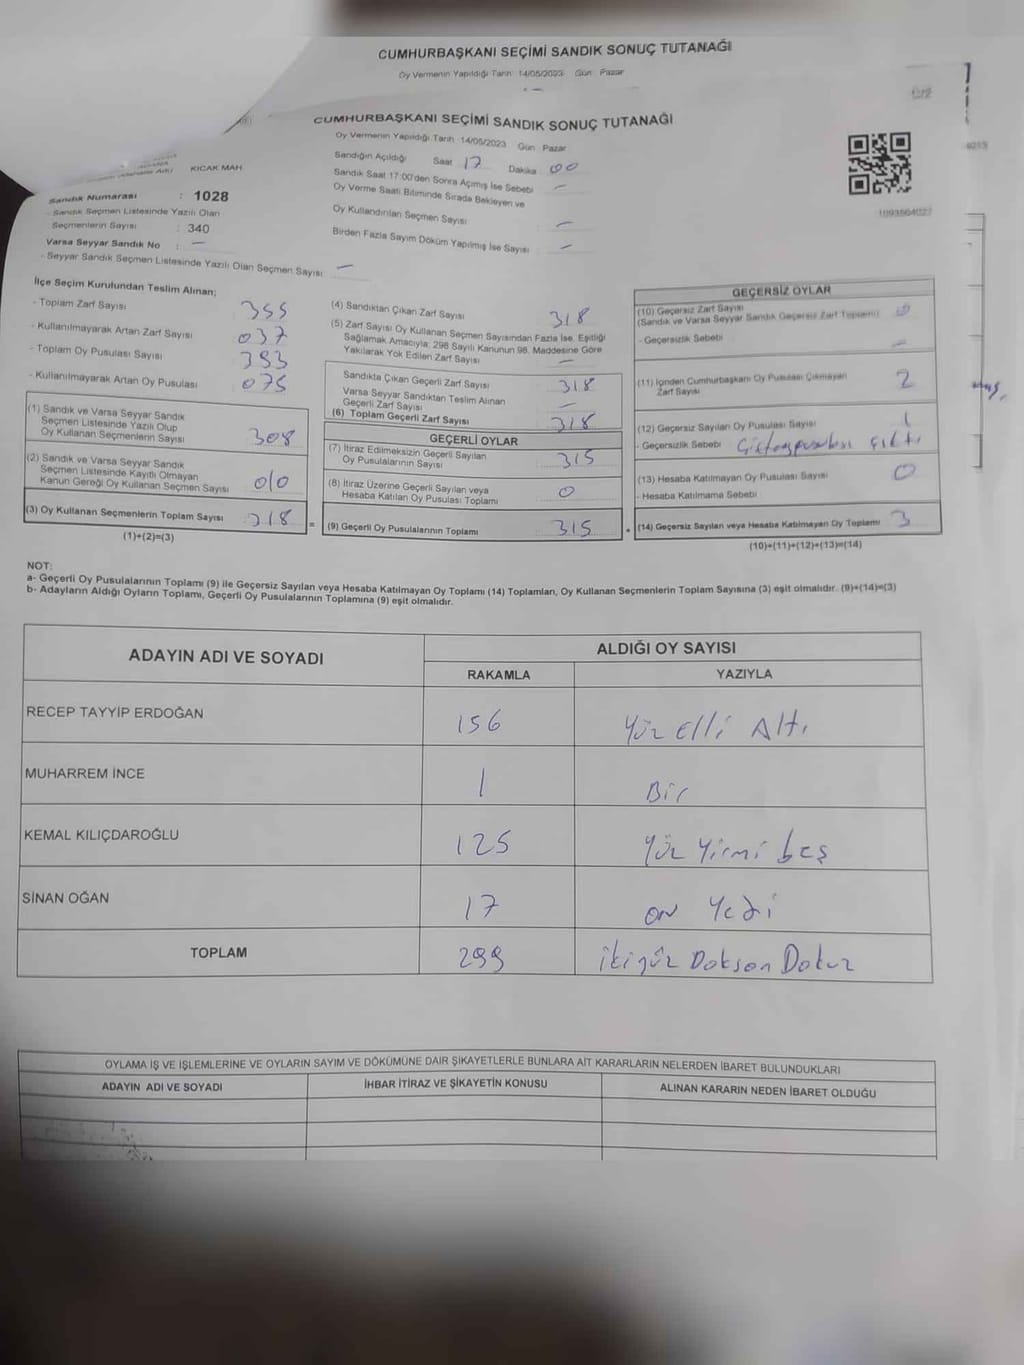 CUMHURBAŞKANI SEÇİMİ SANDIK SONUÇ TUTANAĞI
Oy Vermenin Yapıldığı Tarih: 14/05/2023 Gün: Pazar
CUMHURBAŞKANI SEÇİMİ SANDIK SONUÇ TUTANAĞI
Oy Vermenin Yapıldığı Tarih: 14/05/2023 Gün: Pazar
Sandığın Açıldığı Saat 17 Dakika 00
Sandık Saat 17:00'den Sonra Açılmış İse Sebebi –
Oy Verme Saati Bitiminde Sırada Bekleyen ve
Oy Kullandırılan Seçmen Sayısı –
Birden Fazla Sayım Döküm Yapılmış İse Sayısı –
1093564027
KICAK MAH.
Sandık Numarası : 1028
- Sandık Seçmen Listesinde Yazılı Olan
Seçmenlerin Sayısı : 340
Varsa Seyyar Sandık No : –
- Seyyar Sandık Seçmen Listesinde Yazılı Olan Seçmen Sayısı –
İlçe Seçim Kurulundan Teslim Alınan;
- Toplam Zarf Sayısı 355
- Kullanılmayarak Artan Zarf Sayısı 037
- Toplam Oy Pusulası Sayısı 393
- Kullanılmayarak Artan Oy Pusulası 075
(1) Sandık ve Varsa Seyyar Sandık
Seçmen Listesinde Yazılı Olup
Oy Kullanan Seçmenlerin Sayısı 308
(2) Sandık ve Varsa Seyyar Sandık
Seçmen Listesinde Kayıtlı Olmayan
Kanun Gereği Oy Kullanan Seçmen Sayısı 010
(3) Oy Kullanan Seçmenlerin Toplam Sayısı 318
(1)+(2)=(3)
(4) Sandıktan Çıkan Zarf Sayısı 318
(5) Zarf Sayısı Oy Kullanan Seçmen Sayısından Fazla İse, Eşitliği
Sağlamak Amacıyla; 298 Sayılı Kanunun 98. Maddesine Göre
Yakılarak Yok Edilen Zarf Sayısı –
Sandıkta Çıkan Geçerli Zarf Sayısı 318
Varsa Seyyar Sandıktan Teslim Alınan
Geçerli Zarf Sayısı –
(6) Toplam Geçerli Zarf Sayısı 318
GEÇERLİ OYLAR
(7) İtiraz Edilmeksizin Geçerli Sayılan
Oy Pusulalarının Sayısı 315
(8) İtiraz Üzerine Geçerli Sayılan veya
Hesaba Katılan Oy Pusulası Toplamı 0
= (9) Geçerli Oy Pusulalarının Toplamı 315 +
GEÇERSİZ OYLAR
(10) Geçersiz Zarf Sayısı
(Sandık ve Varsa Seyyar Sandık Geçersiz Zarf Toplamı) 0
- Geçersizlik Sebebi –
(11) İçinden Cumhurbaşkanı Oy Pusulası Çıkmayan
Zarf Sayısı 2
(12) Geçersiz Sayılan Oy Pusulası Sayısı 1
- Geçersizlik Sebebi Çift oy pusulası çıktı
(13) Hesaba Katılmayan Oy Pusulası Sayısı 0
- Hesaba Katılmama Sebebi
(14) Geçersiz Sayılan veya Hesaba Katılmayan Oy Toplamı 3
(10)+(11)+(12)+(13)=(14)
NOT:
a- Geçerli Oy Pusulalarının Toplamı (9) ile Geçersiz Sayılan veya Hesaba Katılmayan Oy Toplamı (14) Toplamları, Oy Kullanan Seçmenlerin Toplam Sayısına (3) eşit olmalıdır. (9)+(14)=(3)
b- Adayların Aldığı Oyların Toplamı, Geçerli Oy Pusulalarının Toplamına (9) eşit olmalıdır.
ADAYIN ADI VE SOYADI
ALDIĞI OY SAYISI
RAKAMLA YAZIYLA
RECEP TAYYİP ERDOĞAN 156 Yüz Elli Altı
MUHARREM İNCE 1 Bir
KEMAL KILIÇDAROĞLU 125 Yüz Yirmi beş
SİNAN OĞAN 17 on Yedi
TOPLAM 299 ikiyüz Doksan Dokuz
OYLAMA İŞ VE İŞLEMLERİNE VE OYLARIN SAYIM VE DÖKÜMÜNE DAİR ŞİKAYETLERLE BUNLARA AİT KARARLARIN NELERDEN İBARET BULUNDUKLARI
ADAYIN ADI VE SOYADI İHBAR İTİRAZ VE ŞİKAYETİN KONUSU ALINAN KARARIN NEDEN İBARET OLDUĞU